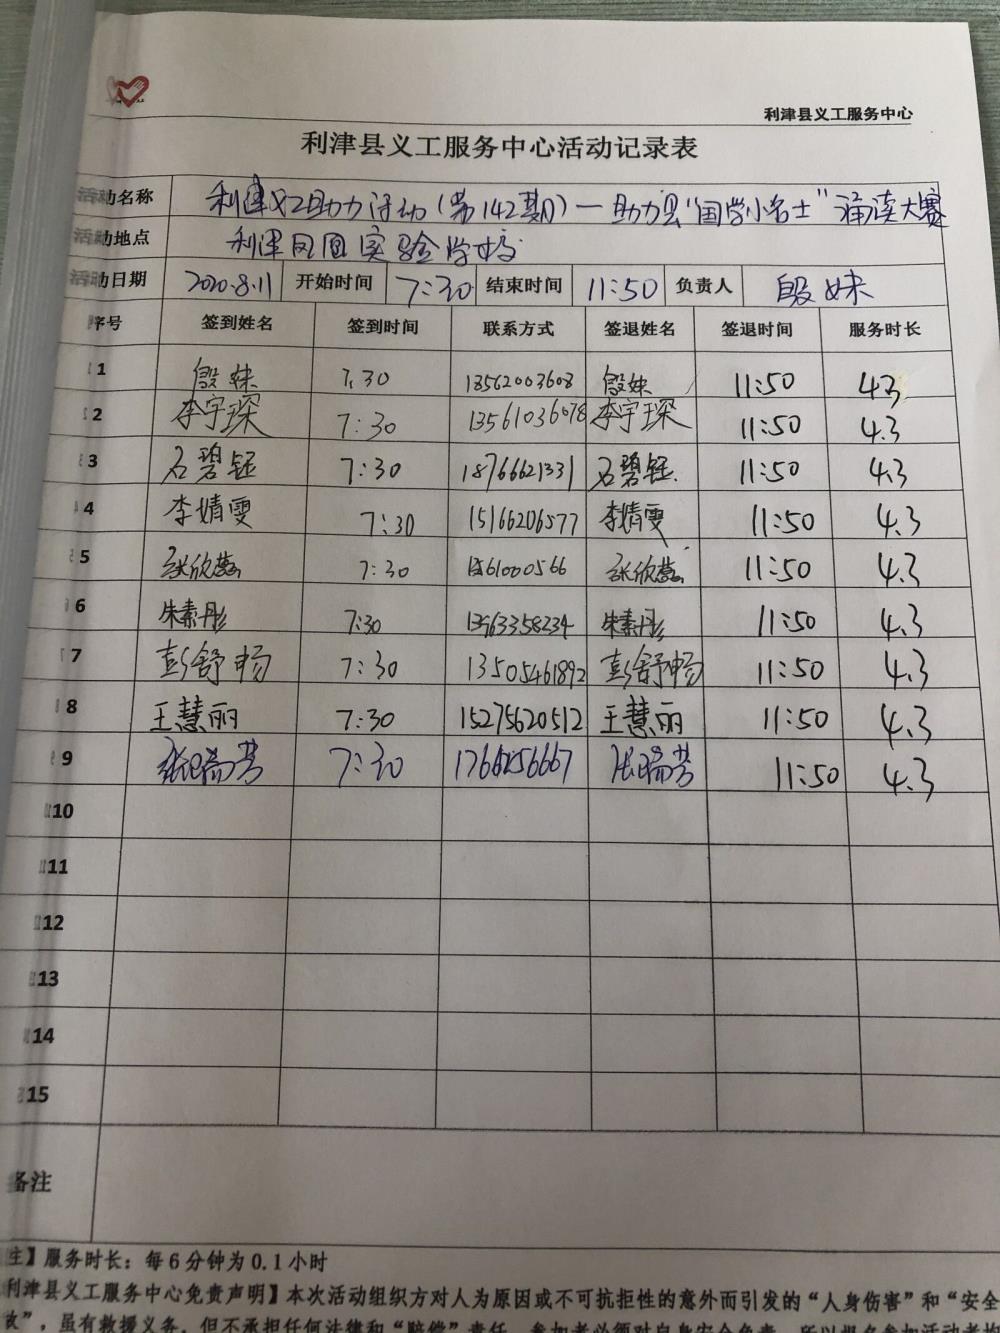 利津县义工服务中心
利津县义工服务中心活动记录表
活动名称 利津义工助力活动(第142期)—助力县"国学小名士"诵读大赛
活动地点 利津凤凰实验学校
活动日期 2020.8.11 开始时间 7:30 结束时间 11:50 负责人 殷妹
序号 签到姓名 签到时间 联系方式 签退姓名 签退时间 服务时长
1 殷妹 7:30 18562003608 殷妹 11:50 4.3
2 李宇琛 7:30 13561036078 李宇琛 11:50 4.3
3 石碧钰 7:30 18766621331 石碧钰 11:50 4.3
4 李婧雯 7:30 15166206577 李婧雯 11:50 4.3
5 张欣蕊 7:30 11:50 4.3
6 朱素彤 7:30 13963358234 朱素彤 11:50 4.3
7 彭舒畅 7:30 13505461892 彭舒畅 11:50 4.3
8 王慧丽 7:30 15275620512 王慧丽 11:50 4.3
9 张瑞芳 7:30 张瑞芳 11:50 4.3
10
11
12
13
14
15
备注
注】服务时长：每6分钟为0.1小时
利津县义工服务中心免责声明】本次活动组织方对人为原因或不可抗拒性的意外而引发的“人身伤害”和“安全
故”，虽有救援义务，但不承担任何法律和“赔偿”责任，参加者必须对自身安全负责，所以报名参加活动者均